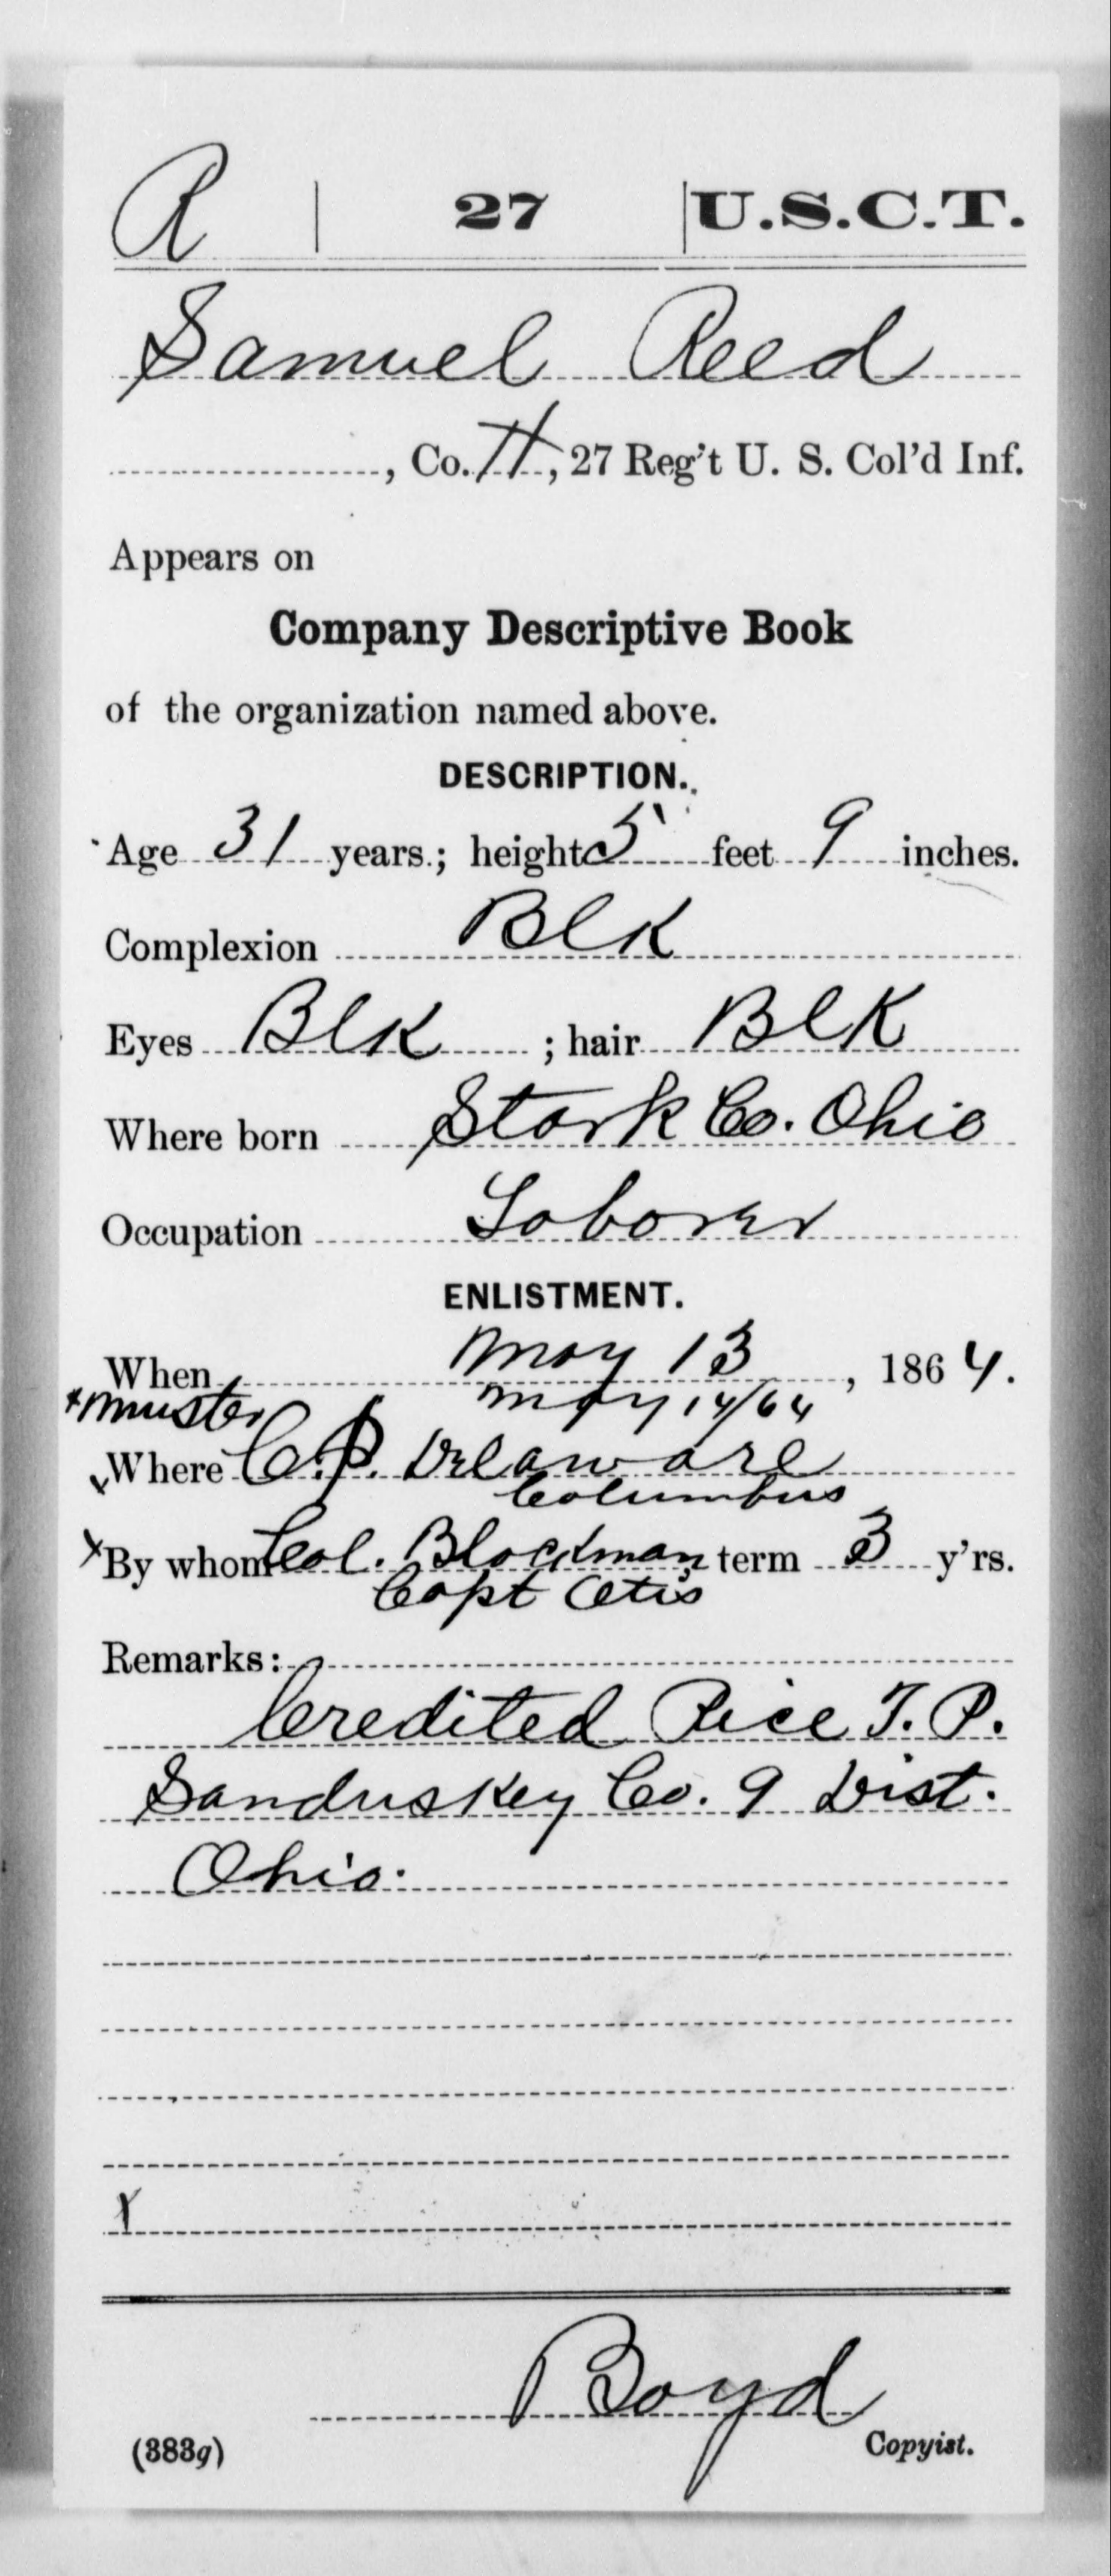 R | 27 | U.S.C.T.
Samuel Reed
, Co. H, 27 Reg't U. S. Col'd Inf.
Appears on
Company Descriptive Book
of the organization named above.
DESCRIPTION.
Age 31 years; height 5 feet 9 inches.
Complexion Blk
Eyes Blk ; hair Blk
Where born Stark Co. Ohio
Occupation Laborer
ENLISTMENT.
When May 13, 1864.
x Muster May 14/64
Where C.P. Delaware
Columbus
x By whom Col. Blackman term 3 y'rs.
Capt Otis
Remarks:
Credited Rice T. P.
Sanduskey Co. 9 Dist.
Ohio.
x
Boyd
(383g) Copyist.